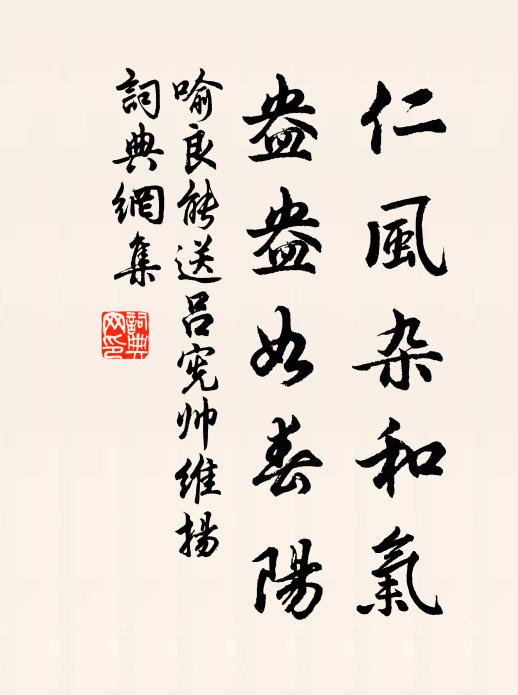 仁風杂和氣
盎盎如春陽
喻良能送吕宪帅维揚
詞典網集
詞典
网印